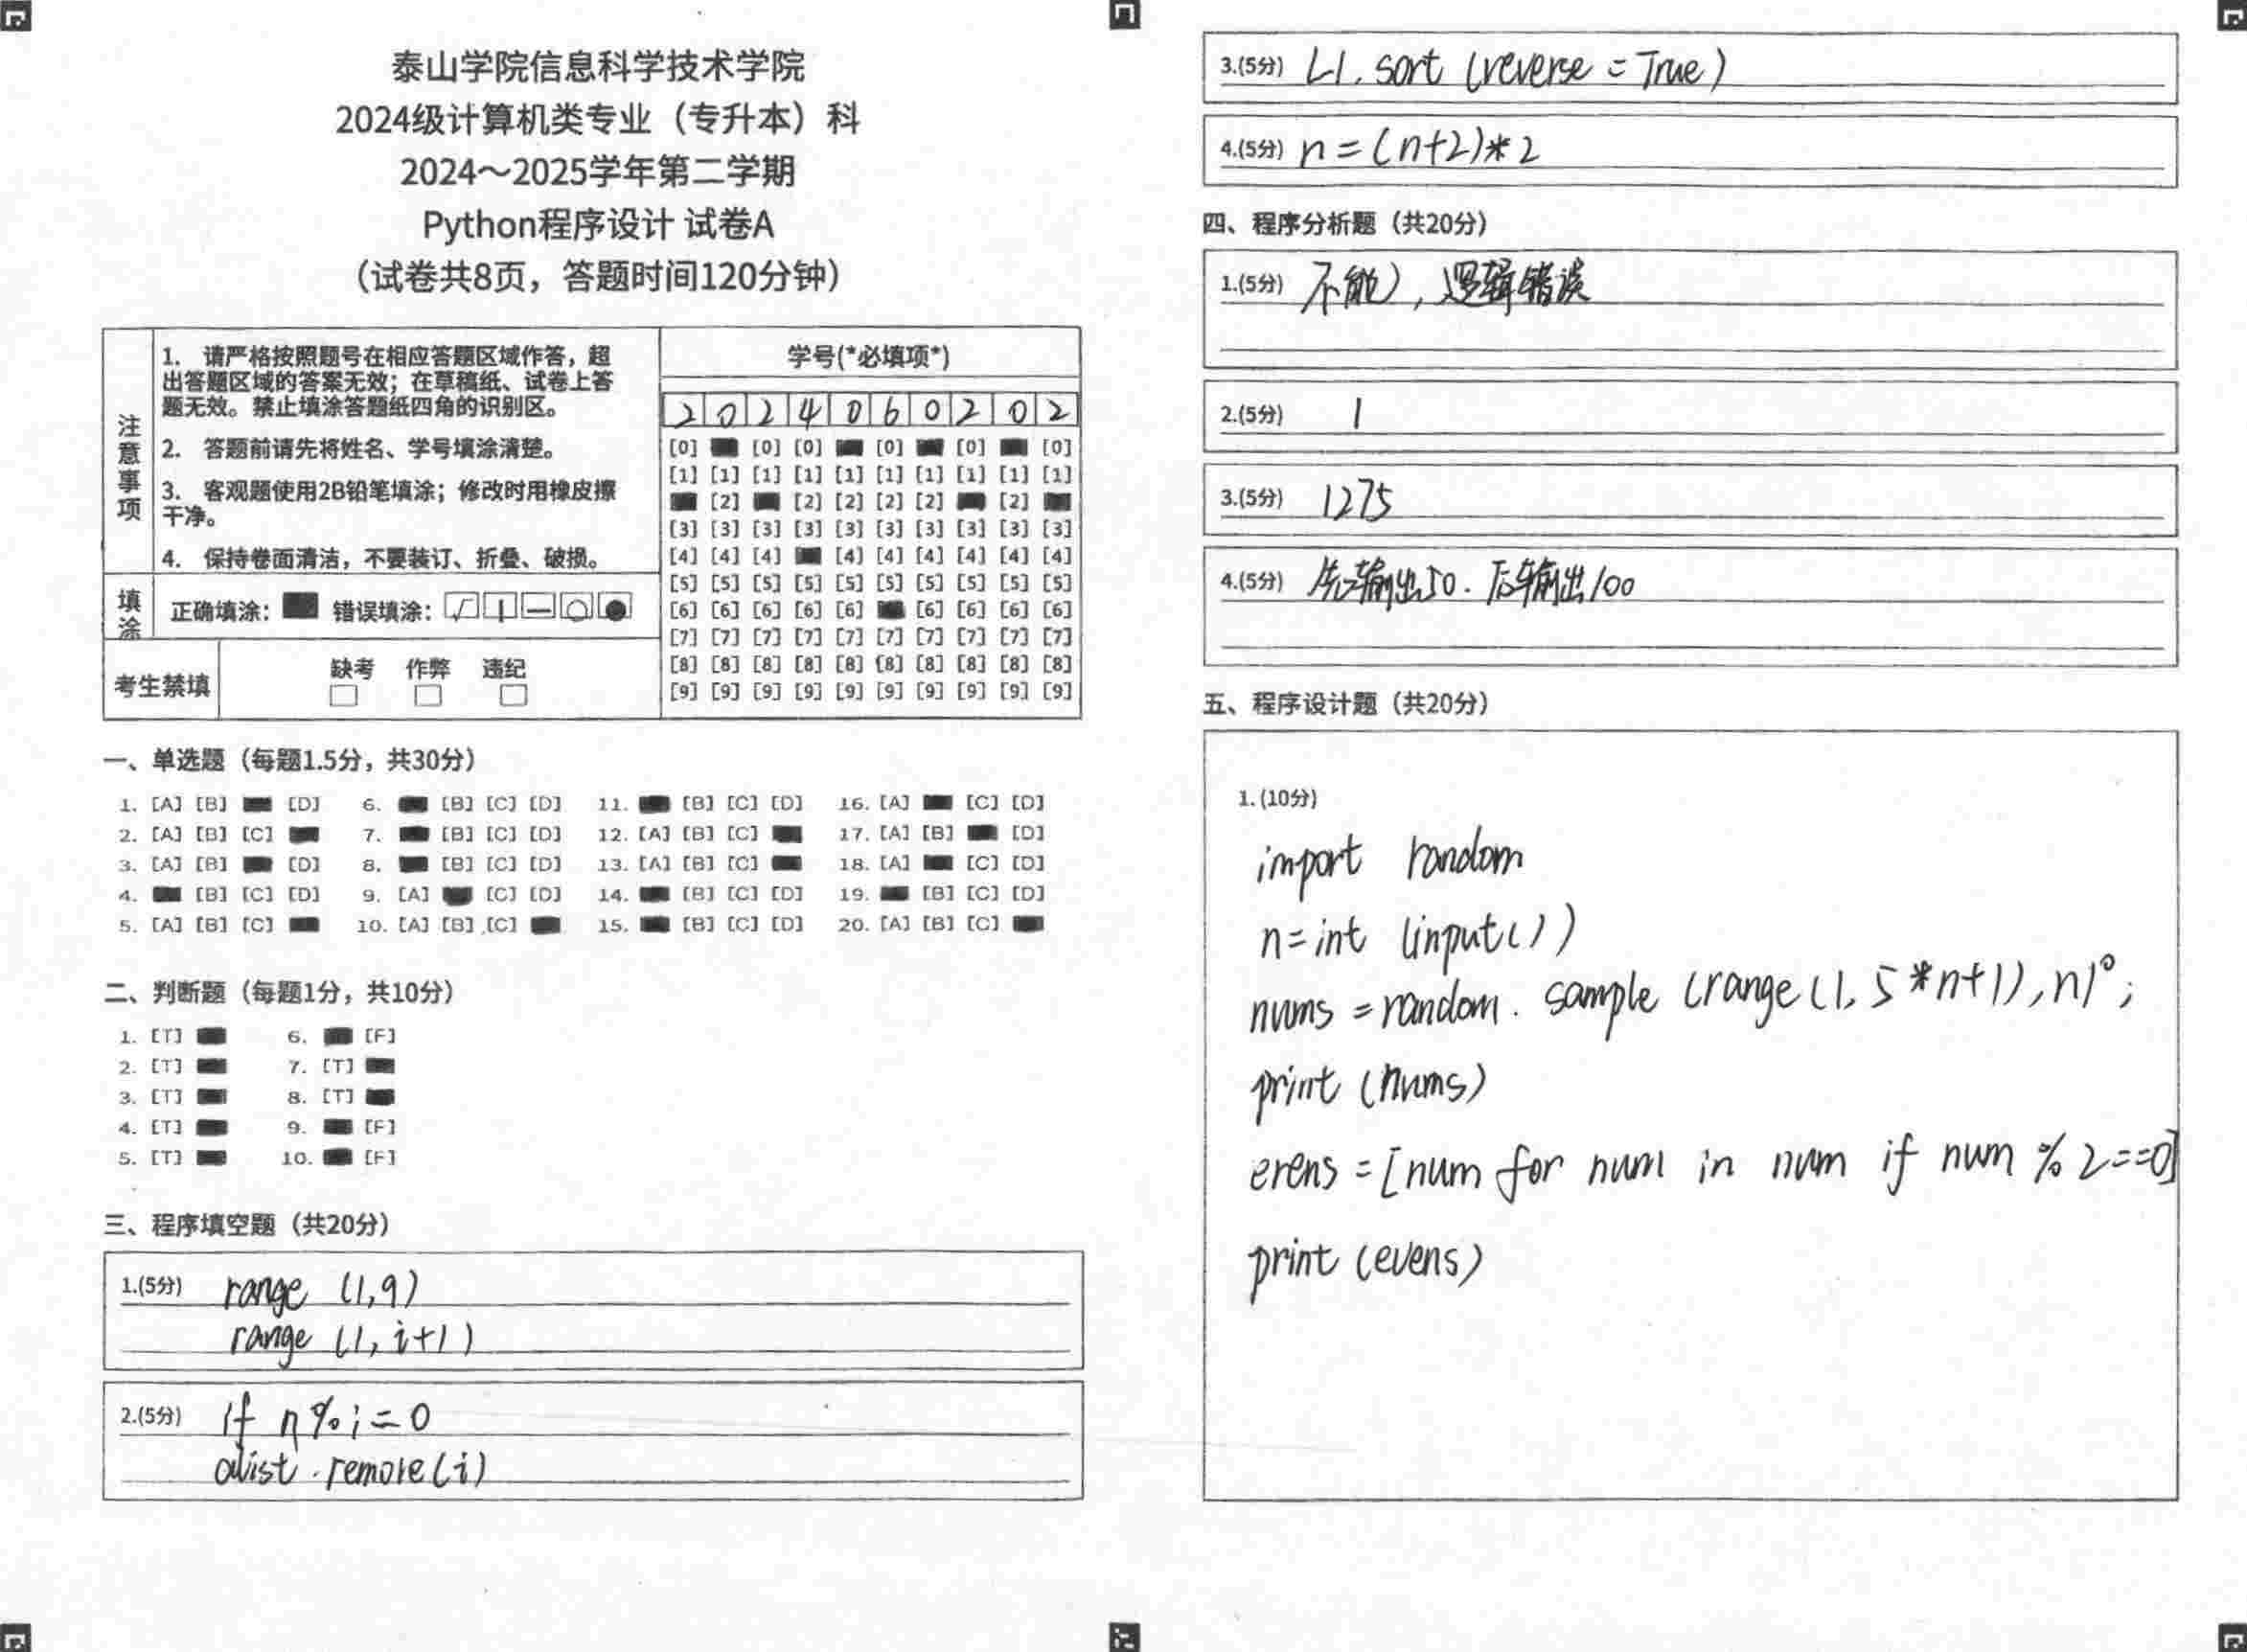 泰山学院信息科学技术学院
2024级计算机类专业（专升本）科
2024～2025学年第二学期
Python程序设计 试卷A
（试卷共8页，答题时间120分钟）
注意事项
1. 请严格按照题号在相应答题区域作答，超
出答题区域的答案无效；在草稿纸、试卷上答
题无效。禁止填涂答题纸四角的识别区。
2. 答题前请先将姓名、学号填涂清楚。
3. 客观题使用2B铅笔填涂；修改时用橡皮擦
干净。
4. 保持卷面清洁，不要装订、折叠、破损。
填涂
正确填涂： 错误填涂：
考生禁填
缺考 作弊 违纪
学号(*必填项*)
2 0 2 4 0 6 0 2 0 2
[0] [0] [0] [0] [0] [0]
[1] [1] [1] [1] [1] [1] [1] [1] [1] [1]
[2] [2] [2] [2] [2] [2]
[3] [3] [3] [3] [3] [3] [3] [3] [3] [3]
[4] [4] [4] [4] [4] [4] [4] [4] [4]
[5] [5] [5] [5] [5] [5] [5] [5] [5] [5]
[6] [6] [6] [6] [6] [6] [6] [6] [6]
[7] [7] [7] [7] [7] [7] [7] [7] [7] [7]
[8] [8] [8] [8] [8] [8] [8] [8] [8] [8]
[9] [9] [9] [9] [9] [9] [9] [9] [9] [9]
一、单选题（每题1.5分，共30分）
1. [A] [B] [D] 6. [B] [C] [D] 11. [B] [C] [D] 16. [A] [C] [D]
2. [A] [B] [C] 7. [B] [C] [D] 12. [A] [B] [C] 17. [A] [B] [D]
3. [A] [B] [D] 8. [B] [C] [D] 13. [A] [B] [C] 18. [A] [C] [D]
4. [B] [C] [D] 9. [A] [C] [D] 14. [B] [C] [D] 19. [B] [C] [D]
5. [A] [B] [C] 10. [A] [B] [C] 15. [B] [C] [D] 20. [A] [B] [C]
二、判断题（每题1分，共10分）
1. [T] 6. [F]
2. [T] 7. [T]
3. [T] 8. [T]
4. [T] 9. [F]
5. [T] 10. [F]
三、程序填空题（共20分）
1.(5分) range (1,9)
range (1, i+1)
2.(5分) if n%i=0
alist.remove(i)
3.(5分) L1.sort (reverse=True)
4.(5分) n=(n+2)*2
四、程序分析题（共20分）
1.(5分) 不能），逻辑错误
2.(5分) 1
3.(5分) 1275
4.(5分) 先输出50.后输出100
五、程序设计题（共20分）
1.(10分)
import random
n=int (input())
nums=random.sample (range(1,5*n+1),n)°;
print (nums)
erens=[num for num in num if num % 2==0]
print (evens)